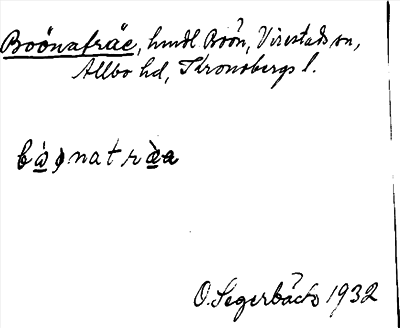 Boönafräe, hmdl Boön, Virestads sn,
Allbo hd, Kronobergs l.
O. Segerbäck 1932